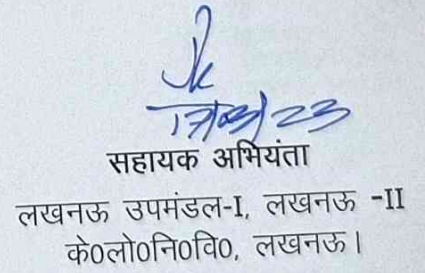 17/03/23
सहायक अभियंता
लखनऊ उपमंडल-I, लखनऊ -II
के0लो0नि0वि0, लखनऊ।